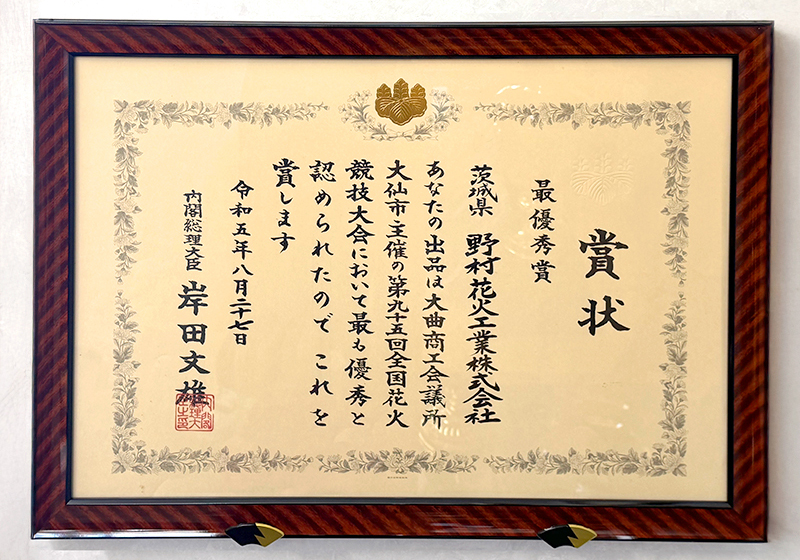 賞状
最優秀賞
茨城県 野村花火工業株式会社
あなたの出品は大曲商工会議所
大仙市主催の第九十五回全国花火
競技大会において最も優秀と
認められたので これを
賞します
令和五年八月二十七日
内閣総理大臣 岸田文雄